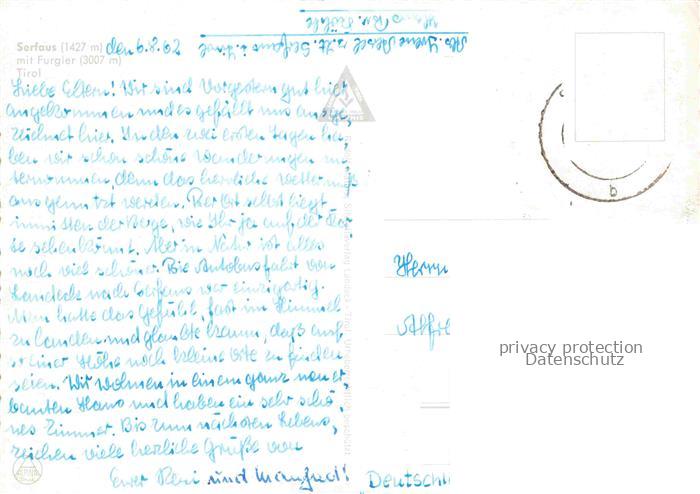 Serfaus (1427 m) den 6.8.62
mit Furgler (3007 m)
Tirol
Liebe Eltern! Wir sind vorgestern gut hier
angekommen und es gefällt uns ausge-
zeichnet hier. In den zwei ersten Tagen ha-
ben wir schon schöne Wanderungen un-
ternommen, denn das herrliche Wetter muß
ausgenutzt werden. Der Ort selbst liegt
inmitten der Berge, wie Ihr ja auf der Kar-
te sehen könnt. Aber in Natur ist alles
noch viel schöner. Die Autobusfahrt von
Landeck nach Serfaus war einzigartig.
Man hatte das Gefühl, fast im Himmel
zu landen und glaubte kaum, daß auf
einer Höhe noch kleine Orte zu finden
seien. Wir wohnen in einem ganz neu er-
bauten Haus und haben ein sehr schö-
nes Zimmer. Bis zum nächsten Lebens-
zeichen viele herzliche Grüße von
Eurer Reni und Manfred!
Abs. Irene z. Zt. Serfaus i. Tirol
Haus
Herrn
Alfre
Deutschl
privacy protection
Datenschutz